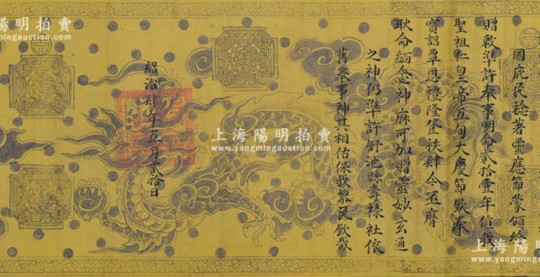 國庇民稔著靈應節蒙頒給
贈敕準許奉事明命貳拾壹年值
聖祖仁皇帝五旬大慶節欽奉
寶詔覃恩禮隆登秩肆今丕膺
耿命緬念神庥可加贈靈妙玄通
之神仍準許池縣祿社依
舊奉事神其相佑保我黎民欽哉
紹治年月貳拾日
上海陽明拍賣
www.yangmingauction.com
上海陽明拍賣
www.yangmingauction.com
上海陽明拍賣
www.yangmingauction.com